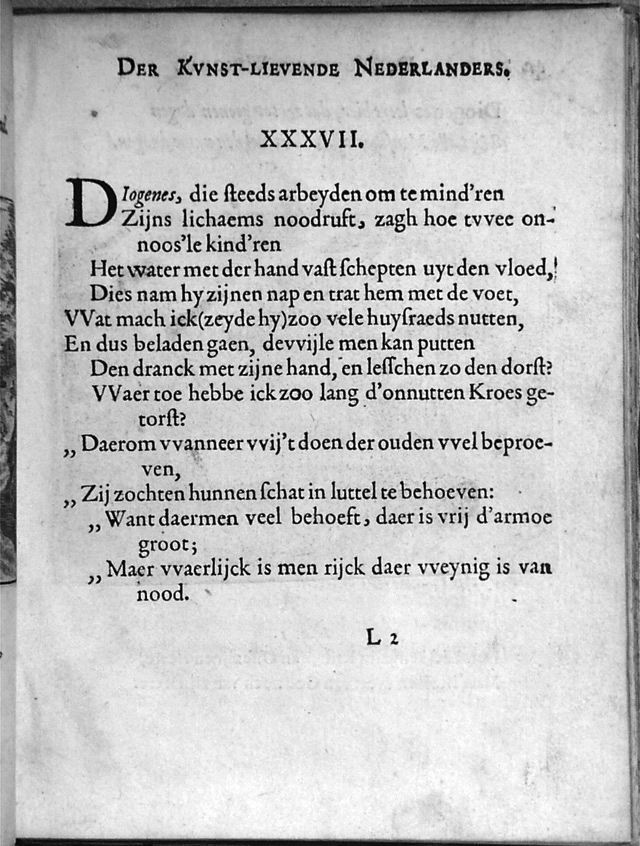 DER KVNST-LIEVENDE NEDERLANDERS.
XXXVII.
DIogenes, die ſteeds arbeyden om te mind'ren
Zijns lichaems noodruft, zagh hoe tvvee on-
noos'le kind'ren
Het water met der hand vaſt ſchepten uyt den vloed,
Dies nam hy zijnen nap en trat hem met de voet,
VVat mach ick (zeyde hy) zoo vele huyſraeds nutten,
En dus beladen gaen, devvijle men kan putten
Den dranck met zijne hand, en leſſchen zo den dorſt?
VVaer toe hebbe ick zoo lang d'onnutten Kroes ge-
torſt?
„ Daerom vvanneer vvij't doen der ouden vvel beproe-
ven,
„ Zij zochten hunnen ſchat in luttel te behoeven:
„ Want daermen veel behoeft, daer is vrij d'armoe
groot;
„ Maer vvaerlijck is men rijck daer vveynig is van
nood.
L 2